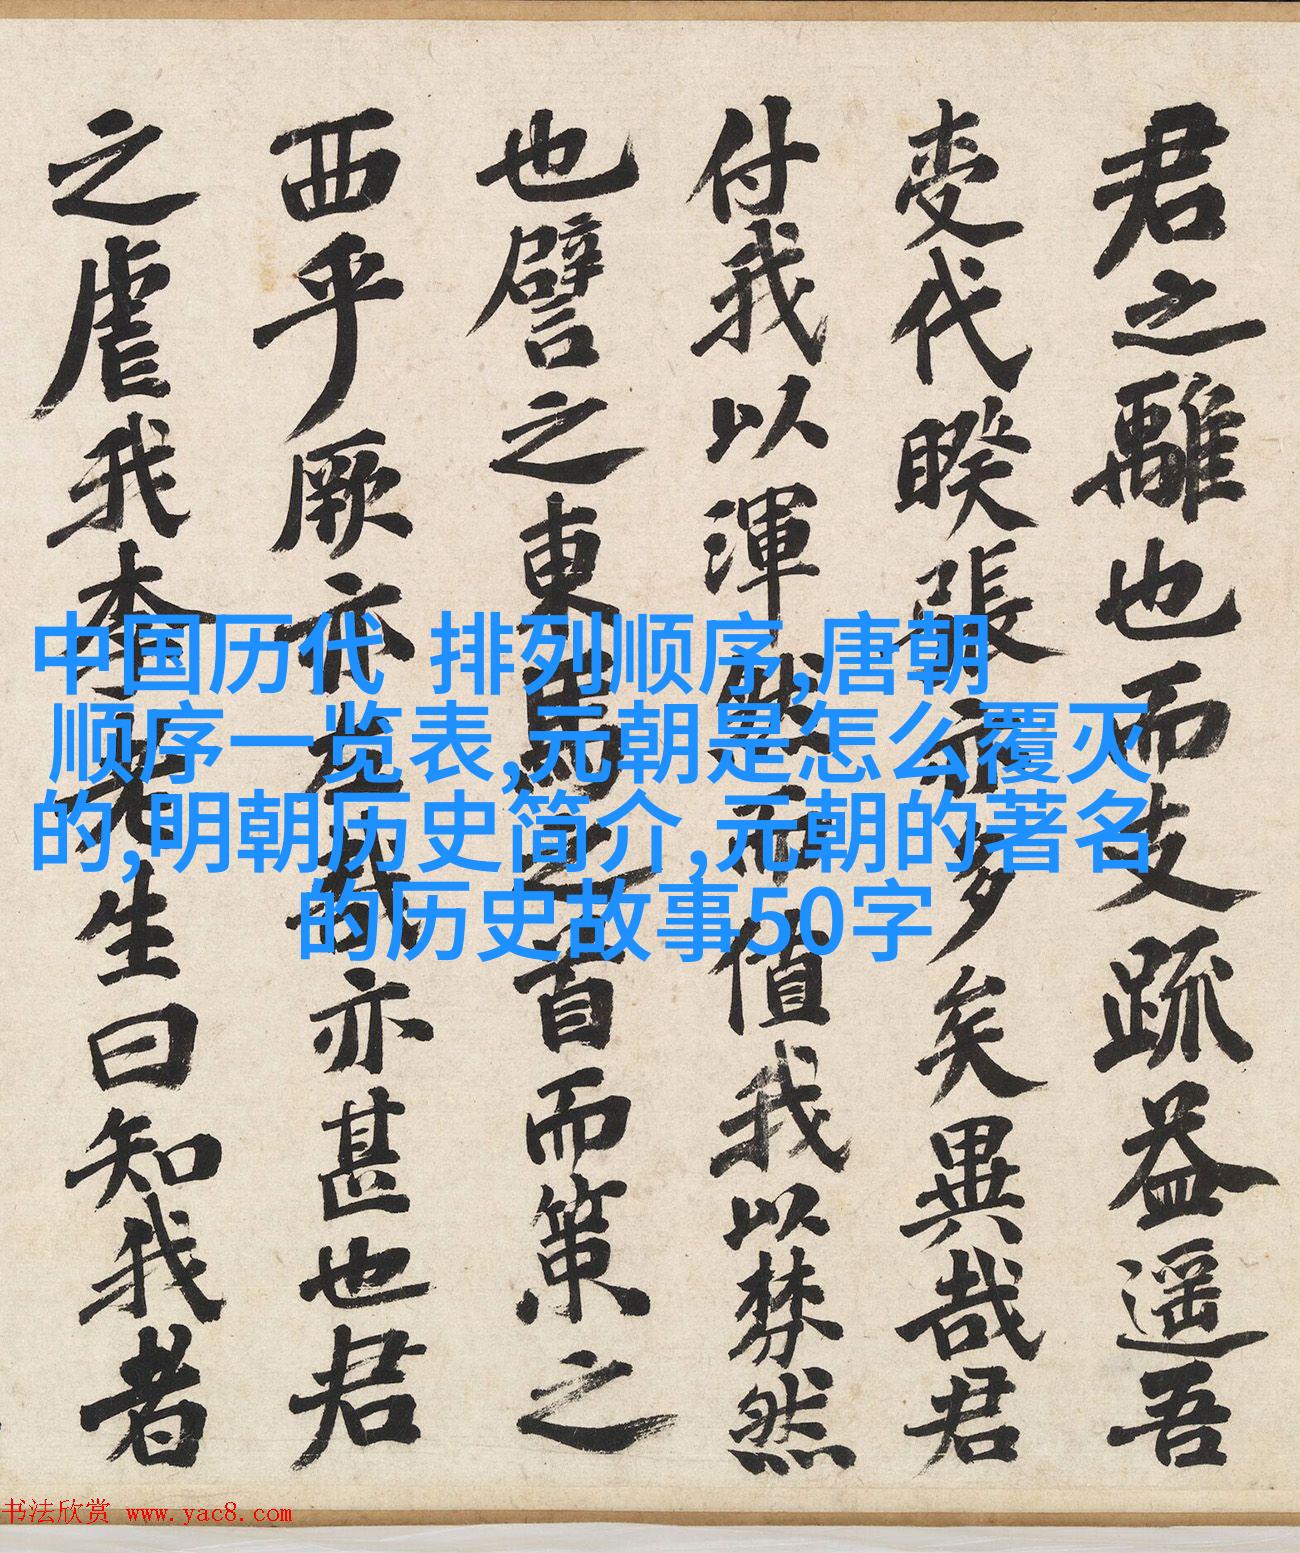 君之離也而支疏益遥吾
代暌張亦多矣異哉君
付我以渾然而值我以棼然
也譬之東馬之首而策之
西乎厥亦左哉亦甚也君
之虐我生曰知我者
中国历代 排列顺序,唐朝
顺序一览表,元朝是怎么覆灭
的,明朝历史简介,元朝的著名
的历史故事50字
书法欣赏 www.yac8.com